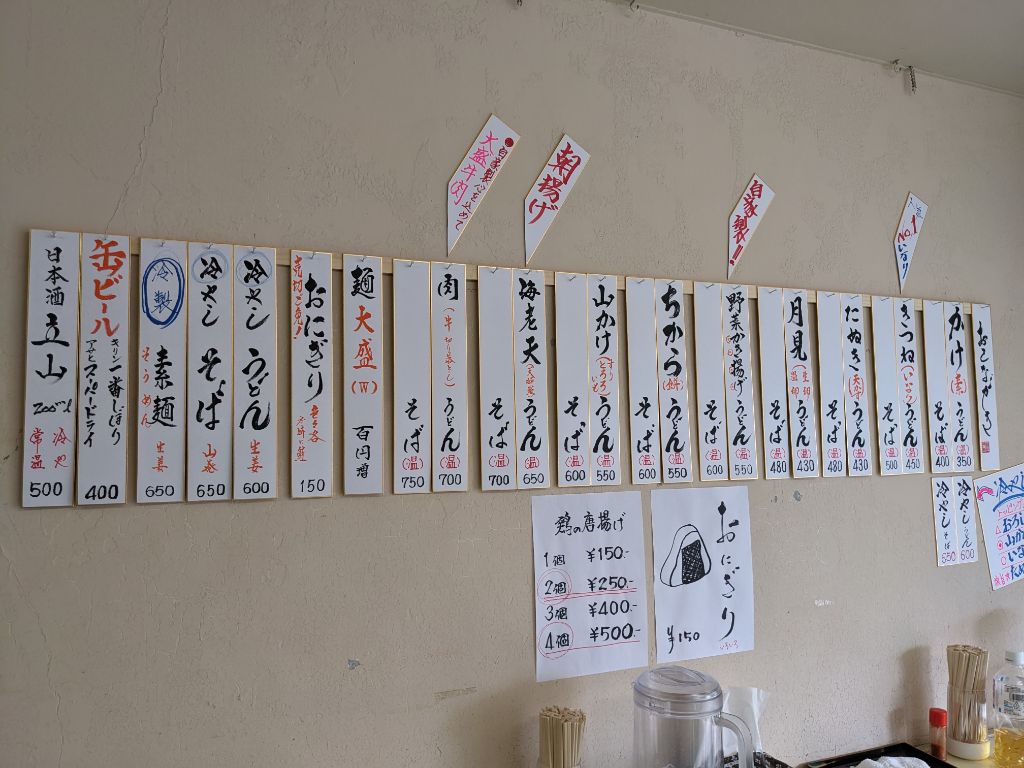 おしながき
かけ(素)うどん(温)350
そば(温)400
きつね(いなり)うどん(温)450
そば(温)500
たぬき(天かす)うどん(温)430
そば(温)480
月見うどん(温)430
そば(温)480
野菜かき揚げうどん(温)550
そば(温)600
ちから(餅)うどん(温)550
そば(温)600
山かけ(とろろいも)うどん(温)550
そば(温)600
海老天うどん(温)650
そば(温)700
肉うどん(温)700
そば(温)750
麺大盛(W)百円増
おにぎり
150
冷やしうどん生姜600
冷やしそば山葵650
冷製素麺そうめん生姜650
缶ビール
キリン一番しぼり
アサヒスーパードライ
400
日本酒立山200ml
冷や
常温
500
No.1
いなり
自家製!!
朝揚げ
自家製
心を込めて
大盛牛肉
鶏の唐揚げ
1個 ¥150.-
2個 ¥250.-
3個 ¥400.-
4個 ¥500.-
おにぎり
¥150
いろいろ
冷やしうどん600
冷やしそば650
冷やし
トッピング
おろし
山か